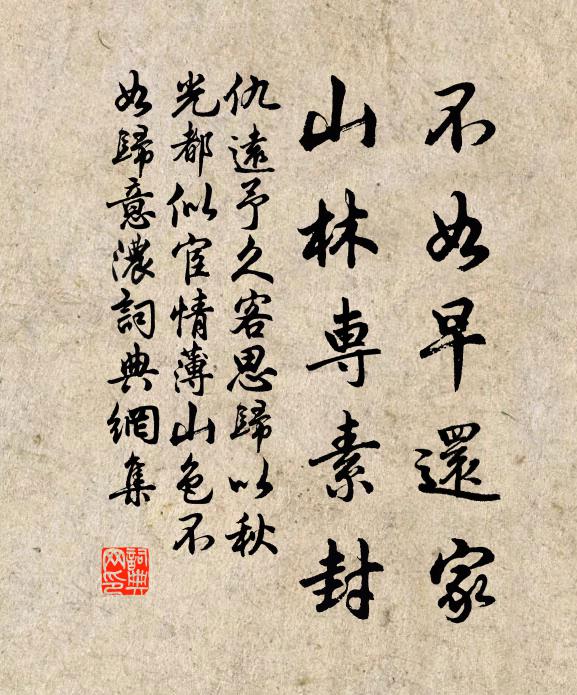 不如早還家
山林專素封
仇遠予久客思歸以秋
光都似宦情薄山色不
如歸意濃詞典網集
詞典网印